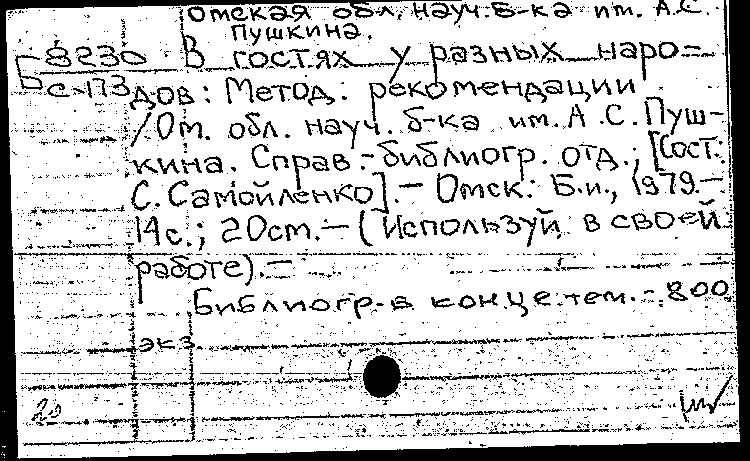 Омская обл. науч. б-ка им. А.С.
Пушкина.
Б 8230 В гостях у разных наро=
с-173 дов: Метод. рекомендации
/Ом. обл. науч. б-ка им. А.С. Пуш-
кина. Справ.-библиогр. отд.; [Сост.:
С. Самойленко].- Омск: Б.и., 1979.-
14с.; 20см.- (Используй в своей
работе).-
Библиогр. в конце тем.- 800
экз.
20